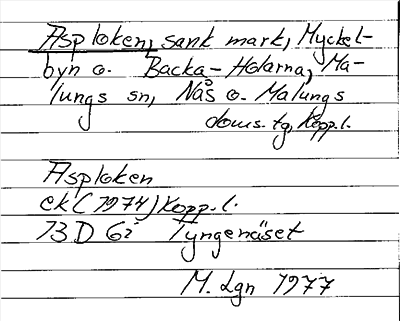 Asploken, sank mark, Myckel-
byn o. Backa-Holarna, Ma-
lungs sn, Nås o. Malungs
doms. tg, Kopp. l.
Asploken
ek (1974) Kopp. l.
13 D 6i Tyngenäset
M. Lgn 1977